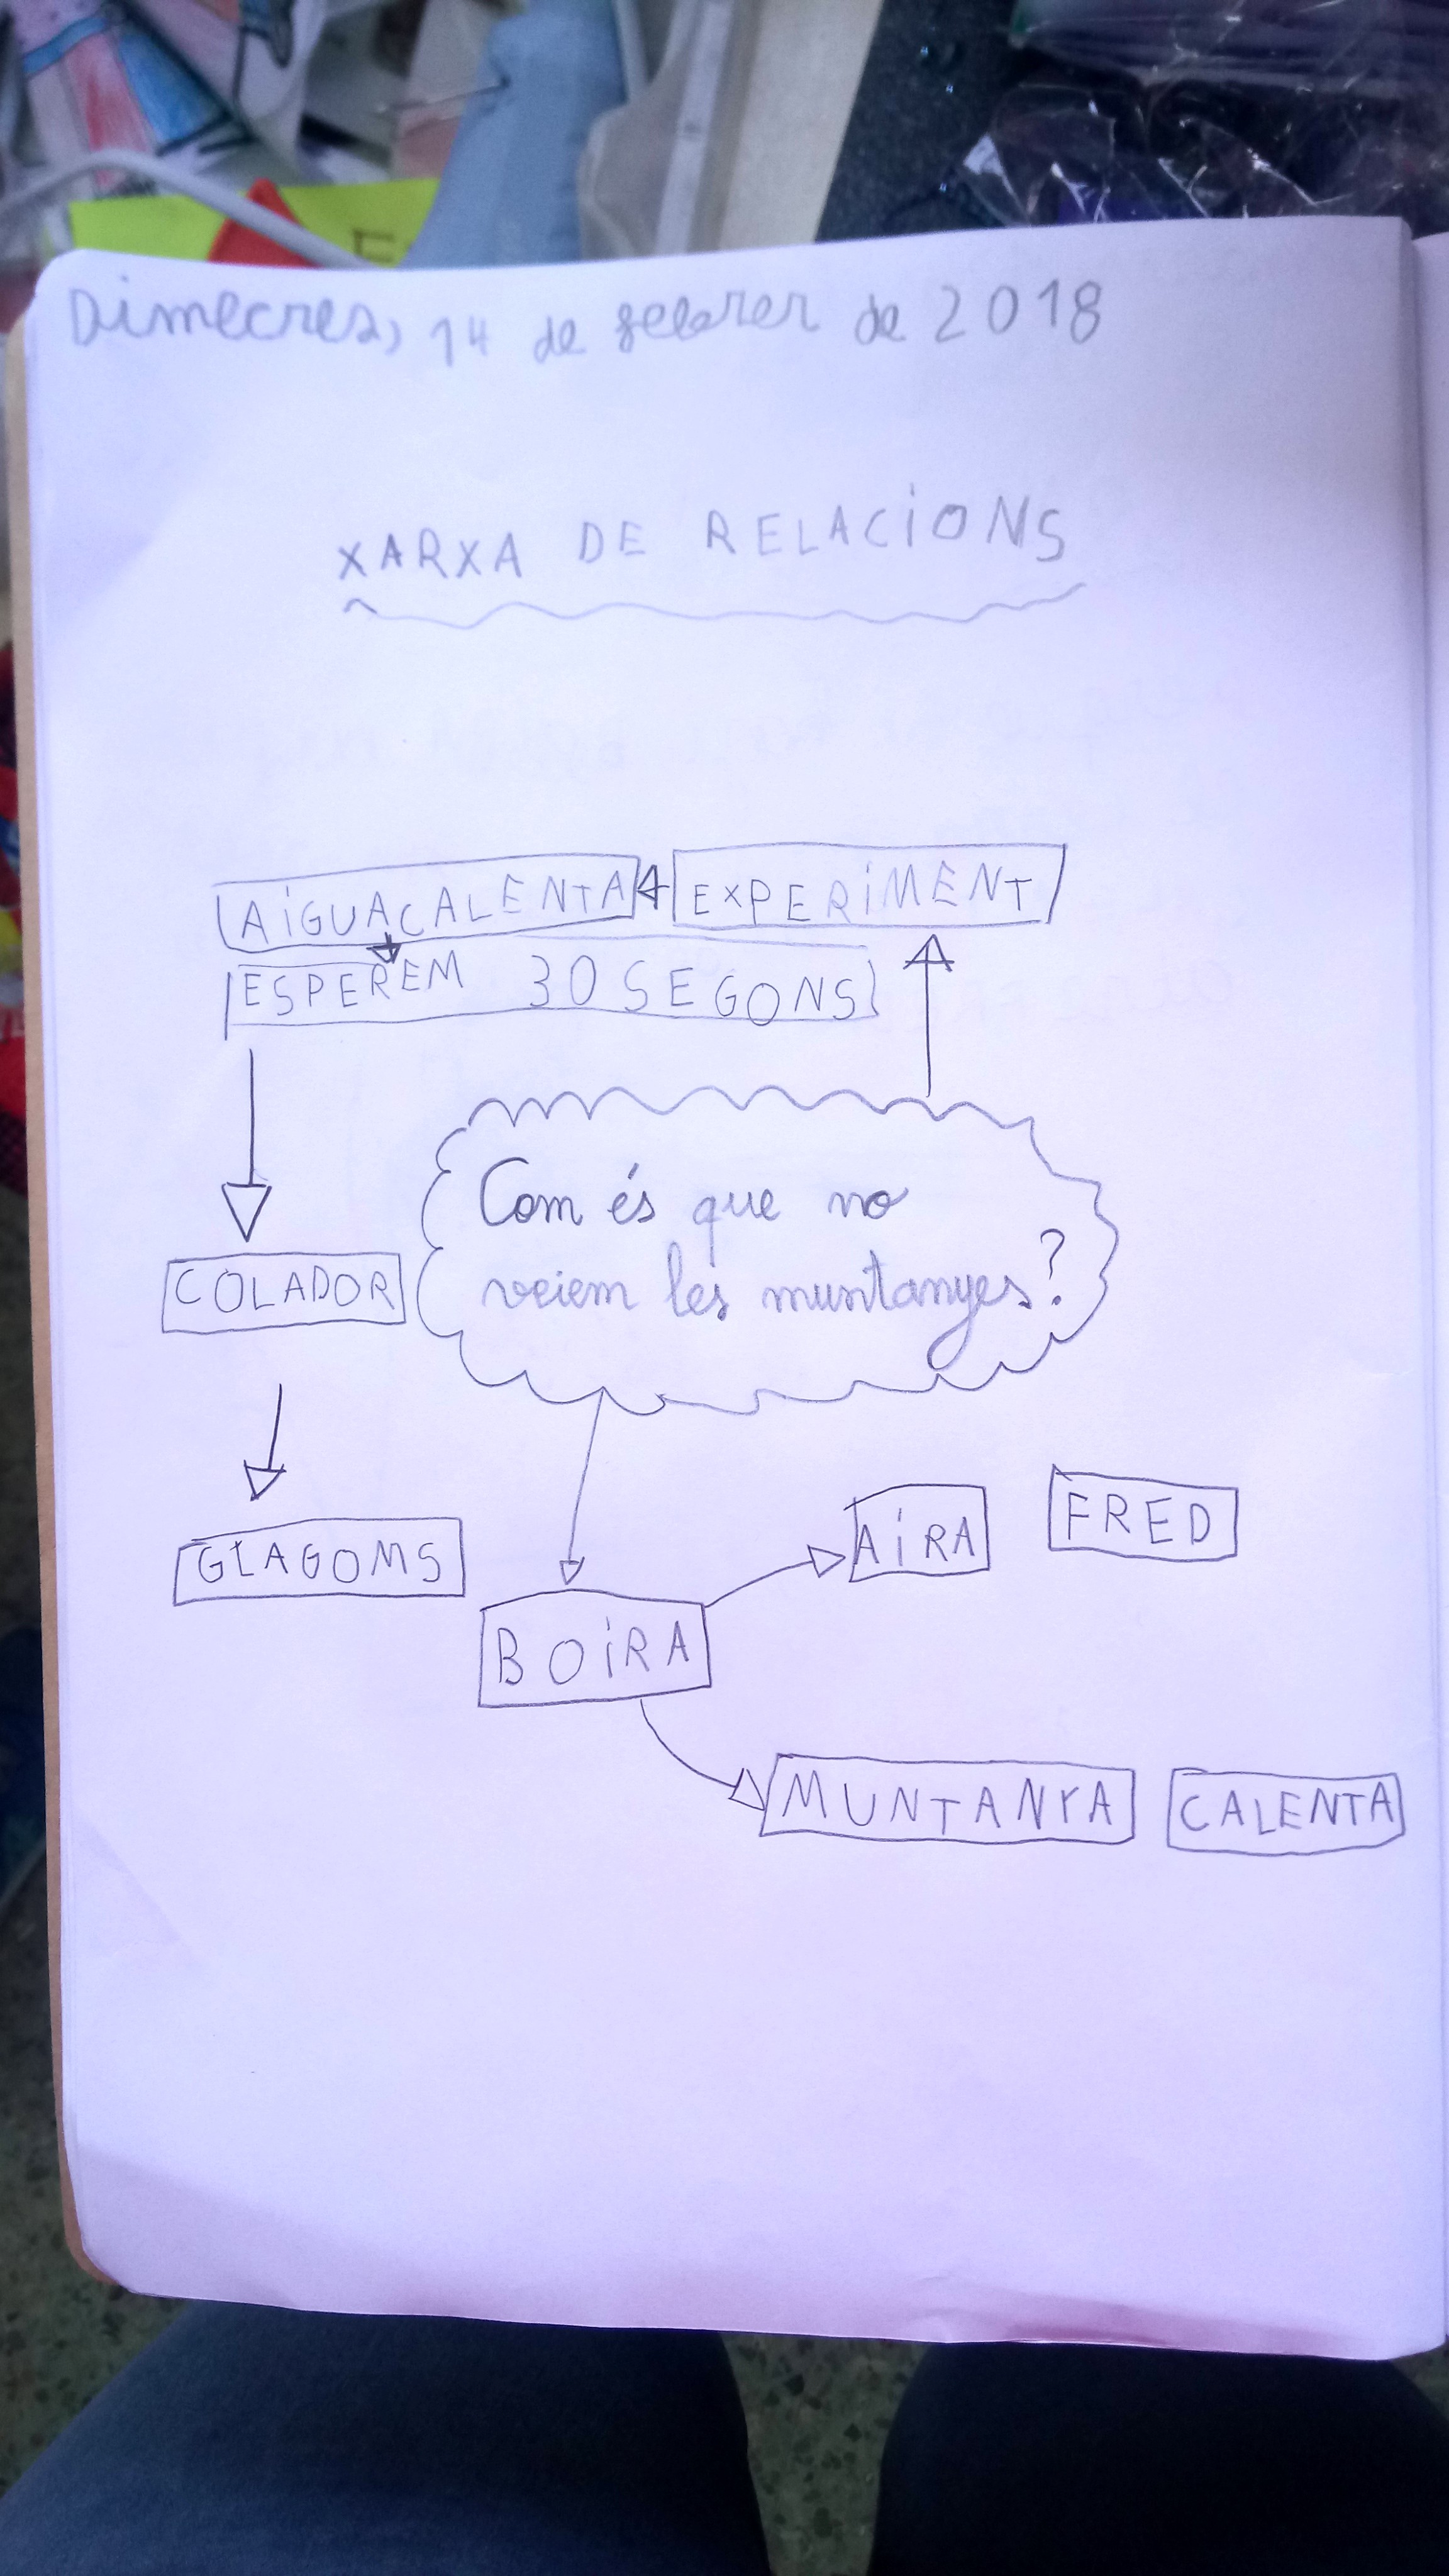 Dimecres, 14 de febrer de 2018
XARXA DE RELACIONS
AIGUACALENTA EXPERIMENT
ESPEREM 30 SEGONS
Com és que no
veiem les muntanyes?
COLADOR
GLAGOMS
AIRA FRED
BOIRA
MUNTANYA CALENTA